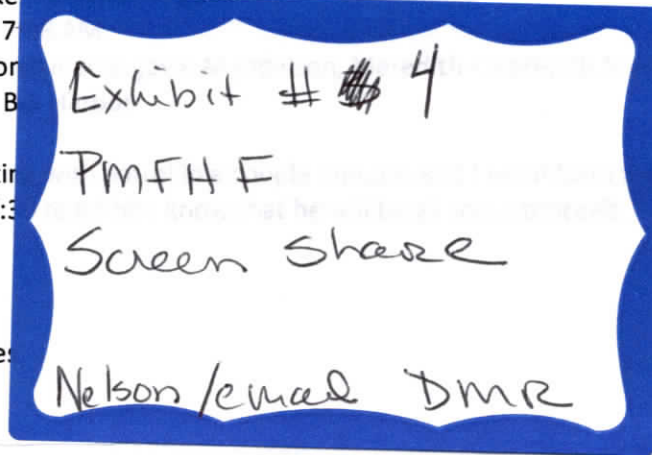 Exhibit # 4
PMFHF
Screen Share
Nelson/email DMR